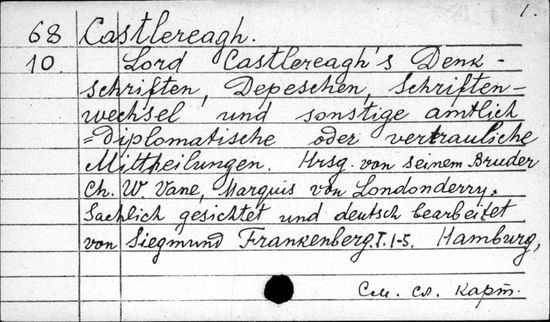 1.
68 Castlereagh.
10. Lord Castlereagh's Denk-
schriften, Depeschen, Schriften-
wechsel und sonstige amtlich
=diplomatische oder vertrauliche
Mittheilungen. Hrsg. von seinem Bruder
Ch. W. Vane, Marquis von Londonderry.
Sachlich gesichtet und deutsch bearbeitet
von Siegmund Frankenberg. T. 1-5. Hamburg,
См. сл. карт.